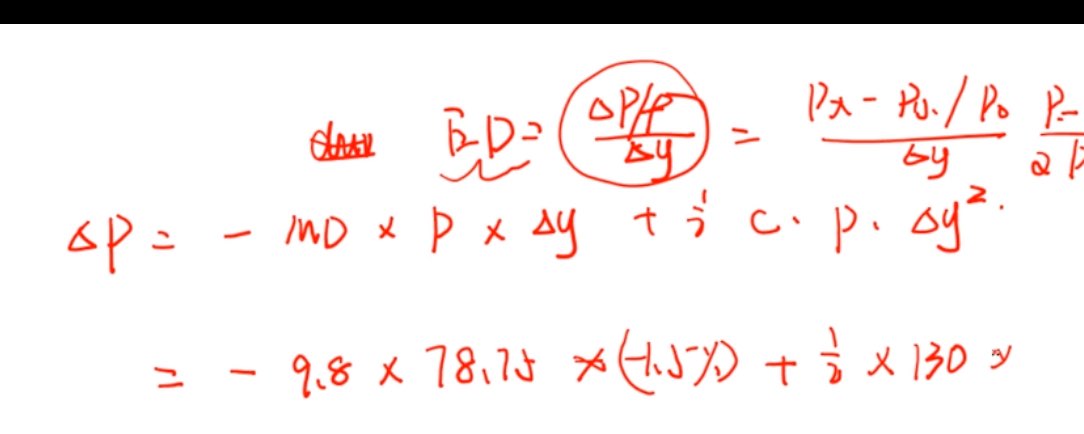 ED = (ΔP/P / Δy) = Px - P0. / P0 / Δy P- / 2P
ΔP = - MD × P × Δy + 1/2 C. P. Δy².
= - 9.8 × 78.75 × (-1.5%) + 1/2 × 130